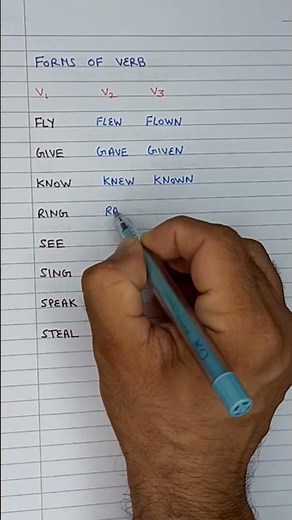 FORMS OF VERB
V1 V2 V3
FLY FLEW FLOWN
GIVE GAVE GIVEN
KNOW KNEW KNOWN
RING RA
SEE
SING
SPEAK
STEAL